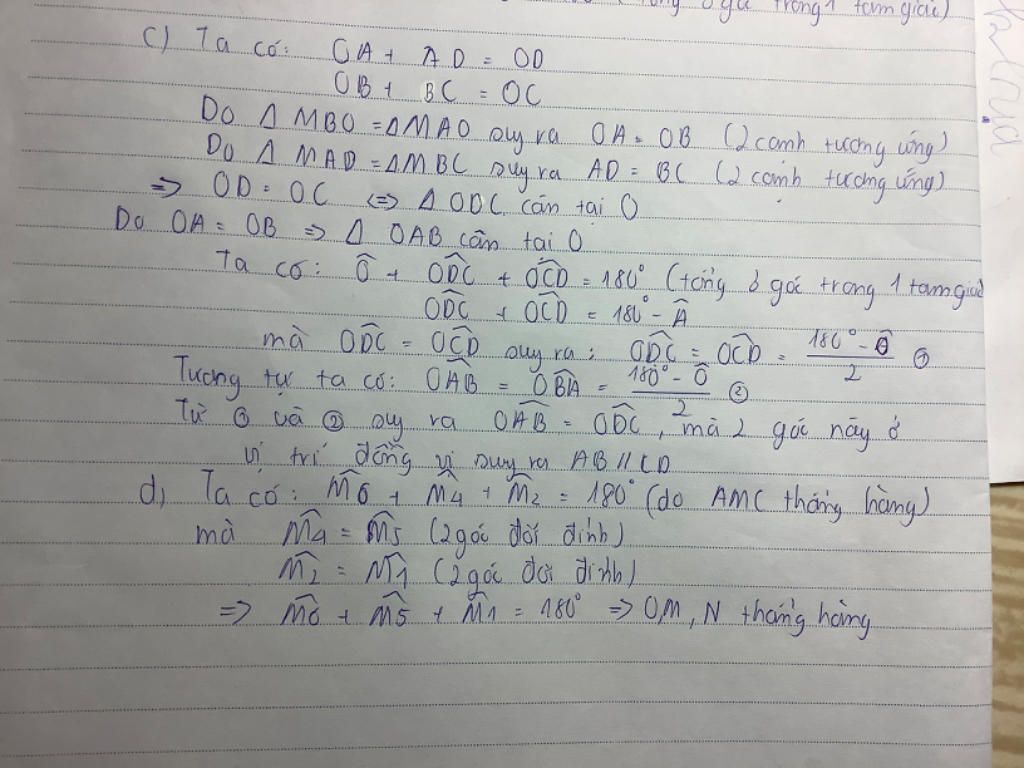 3 góc trong 1 tam giác)
c) Ta có: OA + AD = OD
OB + BC = OC
Do Δ MBO = Δ MAO suy ra OA = OB (2 cạnh tương ứng)
Do Δ MAD = Δ MBC suy ra AD = BC (2 cạnh tương ứng)
=> OD = OC <=> Δ ODC cân tại O
Do OA = OB => Δ OAB cân tại O
Ta có: Ô + ODC^ + OCD^ = 180° (tổng 3 góc trong 1 tam giác
ODC^ + OCD^ = 180° - Â
mà ODC^ = OCD^ suy ra: ODC^ = OCD^ = (180° - Ô)/2 ①
Tương tự ta có: OAB^ = OBA^ = (180° - Ô)/2 ②
Từ ① và ② suy ra OAB^ = ODC^, mà 2 góc này ở
vị trí đồng vị suy ra AB // CD
d, Ta có: M6^ + M4^ + M2^ = 180° (do AMC thẳng hàng)
mà M4^ = M5^ (2 góc đối đỉnh)
M2^ = M1^ (2 góc đối đỉnh)
=> M6^ + M5^ + M1^ = 180° => O, M, N thẳng hàng